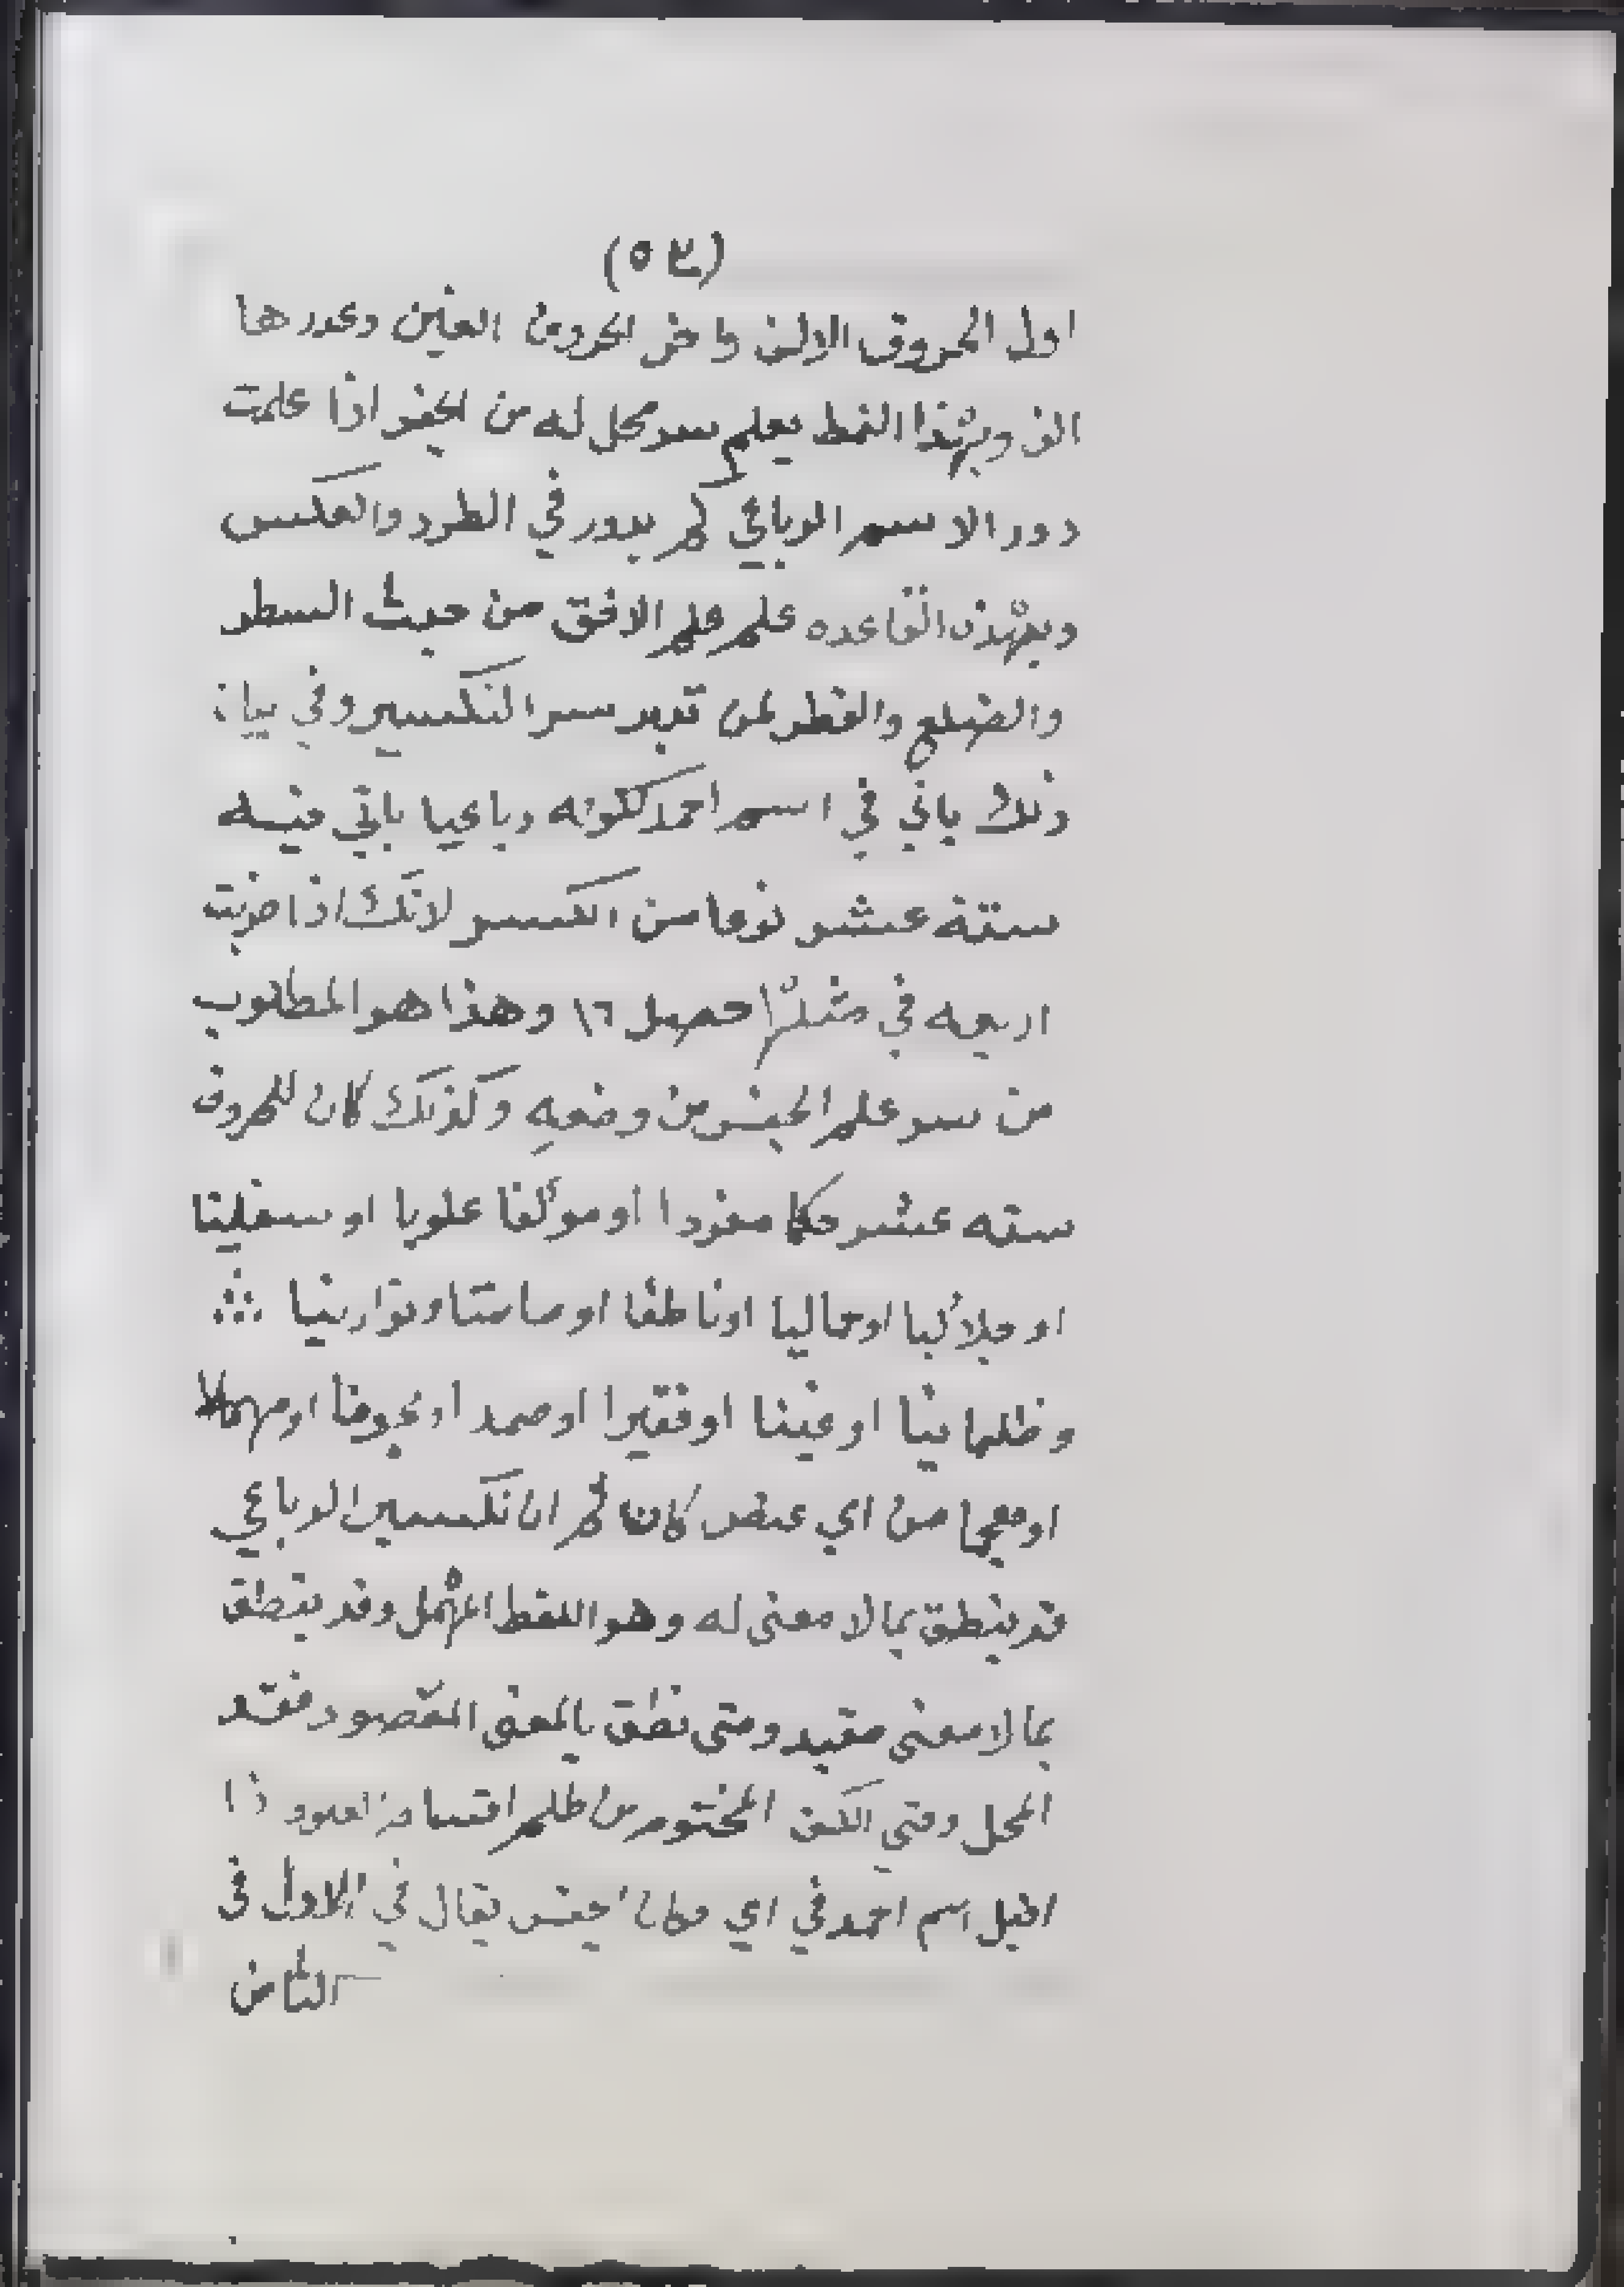 (٥٤)
اول الحروف الالف واخر الحروف الغين وعددها
الف وبهذا النمط يعلم سر محل له من الجفر اذا علمت
دور الاسم الرباعي كم يدور في الطرد والعكس
وبهذه القاعده علم علم الافق من حيث السطر
والضلع والقطر لمن تدبر سر التكسير وفي بيان
ذلك ياتي في اسم احمد لكونه رباعيا ياتي فيه
ستة عشر نوعا من الكسر لانك اذا ضربت
اربعه في مثلها حصل ١٦ وهذا هو المطلوب
من سر علم الجفر من وضعه وكذلك كان للحروف
سته عشر حكما مفردا او مؤلفا علويا او سفليا
او جلاليا او جماليا او ناطقا او صامتا او نورانيا
وظلمانيا او غنيا او فقيرا او صمدا او مجوفا او مهملا
او معجما من اي عنصر كان ثم ان تكسير الرباعي
قد ينطق بما لا معنى له وهو اللفظ المهمل وقد ينطق
بما لا معنى مقيد ومتى نطق بالمعنى المقصود فقد
المحل وفتى الكنز المختوم من طلم اذا
اقبل اسم احمد في اي مكان جفر يقال في الاول في
الثامن